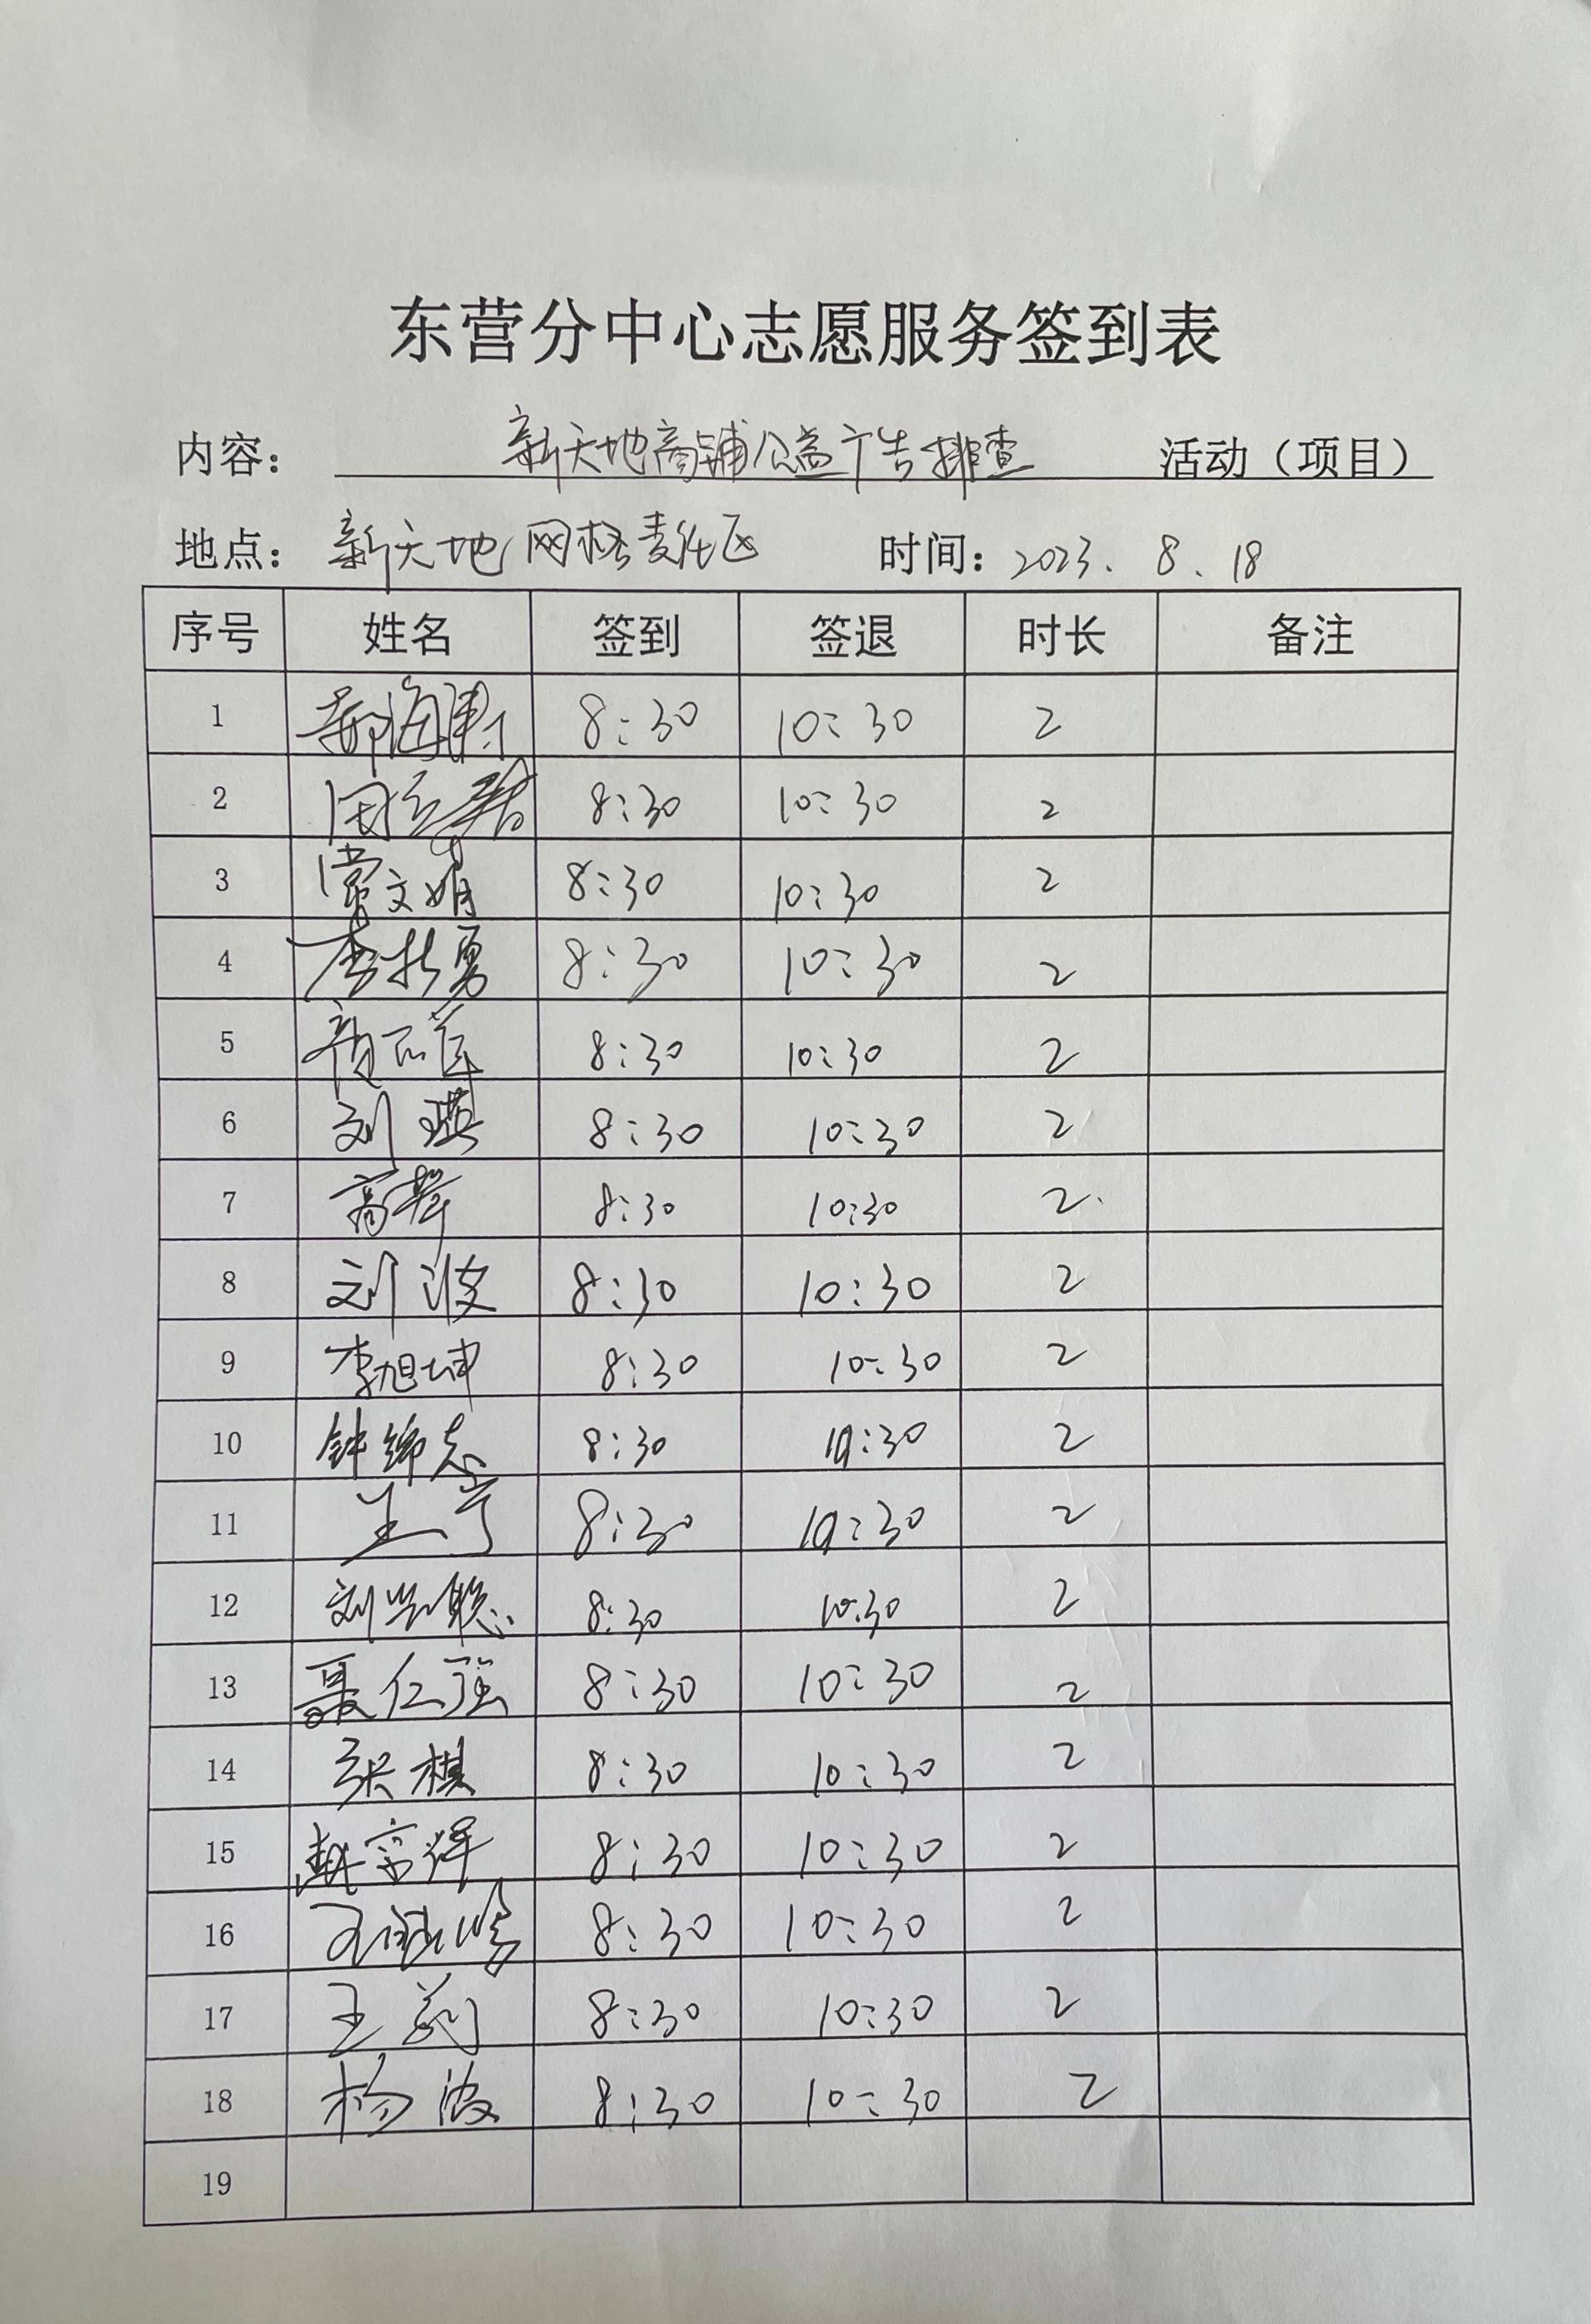 东营分中心志愿服务签到表
内容： 新天地商铺公益广告排查 活动（项目）
地点： 新天地网格责任区 时间：2023.8.18
序号 姓名 签到 签退 时长 备注
1 8:30 10:30 2
2 8:30 10:30 2
3 常文娟 8:30 10:30 2
4 8:30 10:30 2
5 8:30 10:30 2
6 刘瑛 8:30 10:30 2
7 8:30 10:30 2
8 刘波 8:30 10:30 2
9 李旭坤 8:30 10:30 2
10 8:30 10:30 2
11 8:30 10:30 2
12 8:30 10:30 2
13 聂仁强 8:30 10:30 2
14 张棋 8:30 10:30 2
15 8:30 10:30 2
16 8:30 10:30 2
17 王莉 8:30 10:30 2
18 杨波 8:30 10:30 2
19